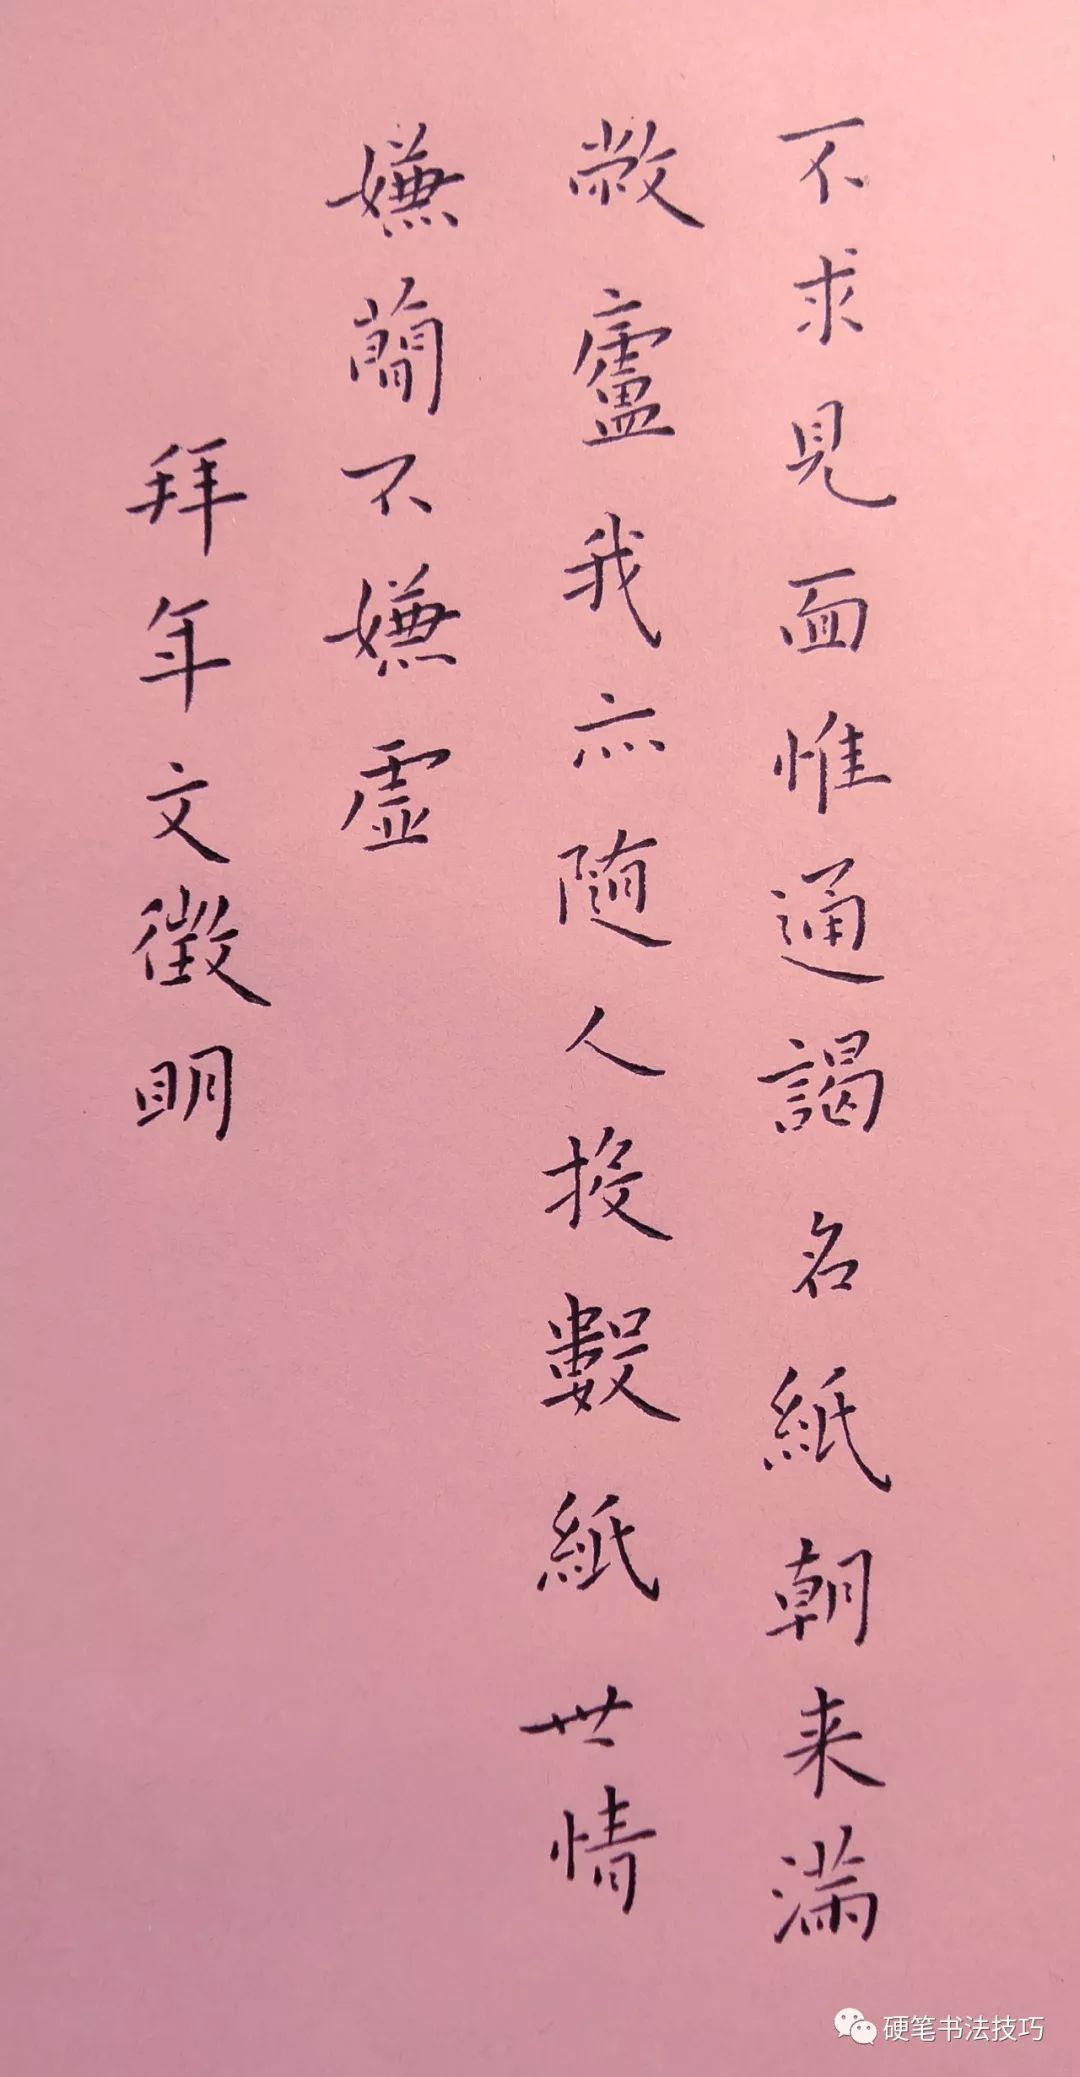 不求見面惟通謁名紙朝来滿
敝廬我亦隨人投數紙世情
嫌簡不嫌虛
拜年文徵明
硬笔书法技巧